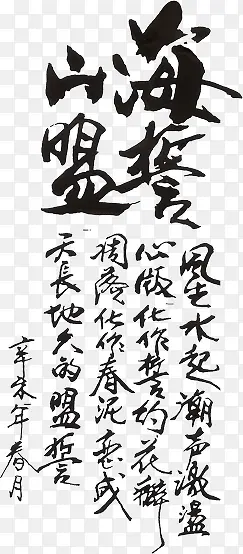 海誓
山盟
風生水起潮声激盪
心版化作誓約花瓣
凋落化作春泥意或
天長地久的盟誓
辛未年春月